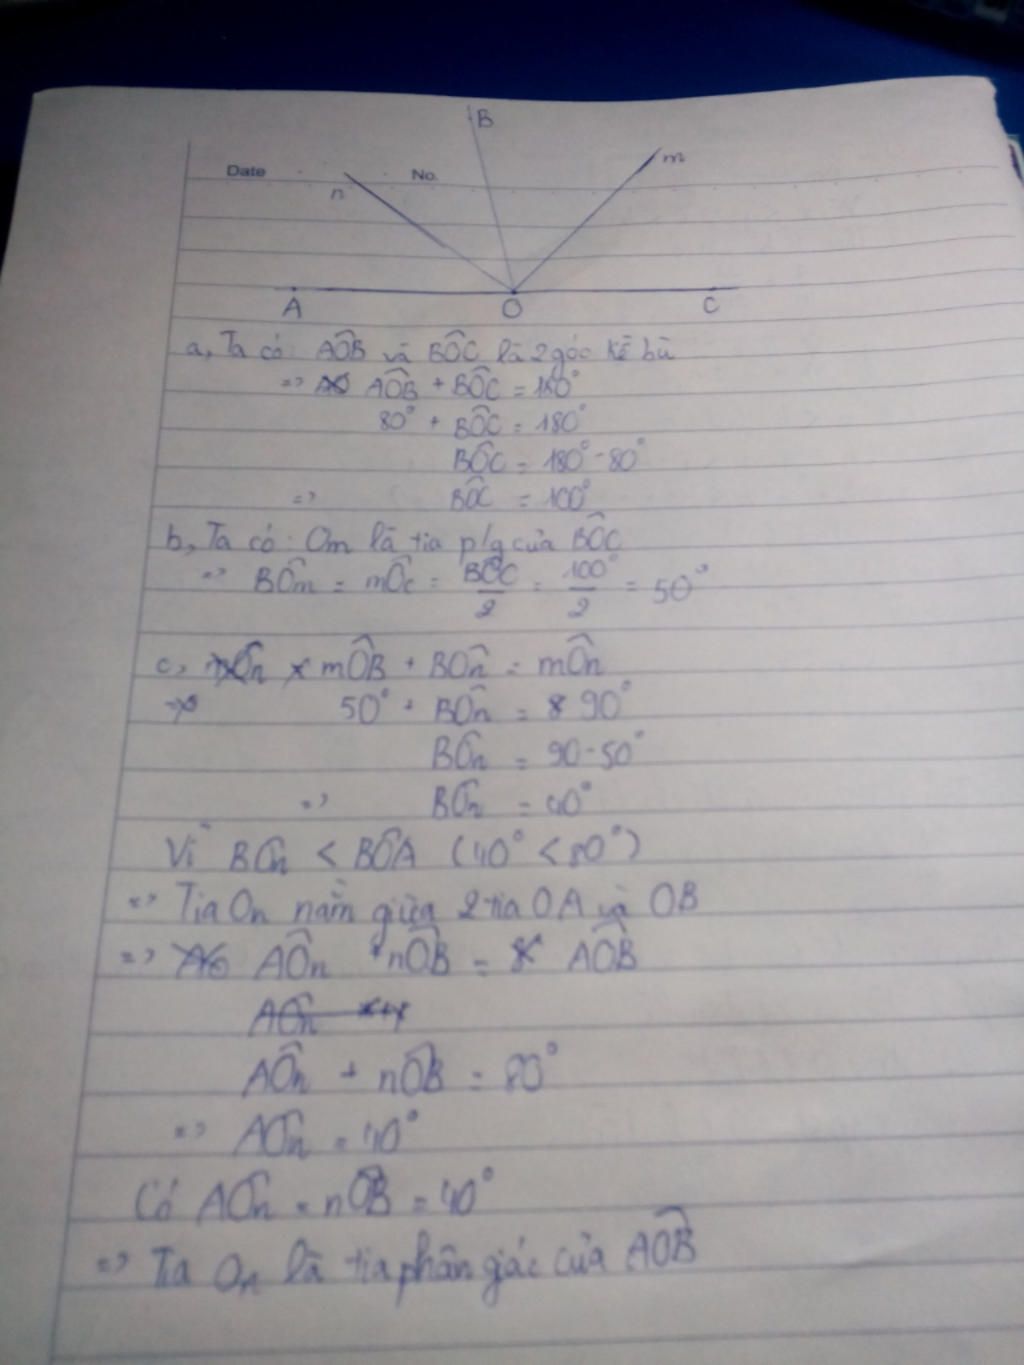 B
m
Date No.
n
A O C
a, Ta có: AÔB và BÔC là 2 góc kề bù
=> AÔB + BÔC = 180°
80° + BÔC = 180°
BÔC = 180° - 80°
=> BÔC = 100°
b, Ta có: Om là tia p/g của BÔC
=> BÔm = mÔc = BÔC/2 = 100°/2 = 50°
c, mÔB + BÔn = mÔn
50° + BÔn = 90°
BÔn = 90 - 50°
=> BÔn = 40°
Vì BÔn < BÔA (40° < 80°)
=> Tia On nằm giữa 2 tia OA và OB
=> AÔn + nÔB = AÔB
AÔn + nÔB = 80°
=> AÔn = 40°
Có AÔn = nÔB = 40°
=> Tia On là tia phân giác của AÔB